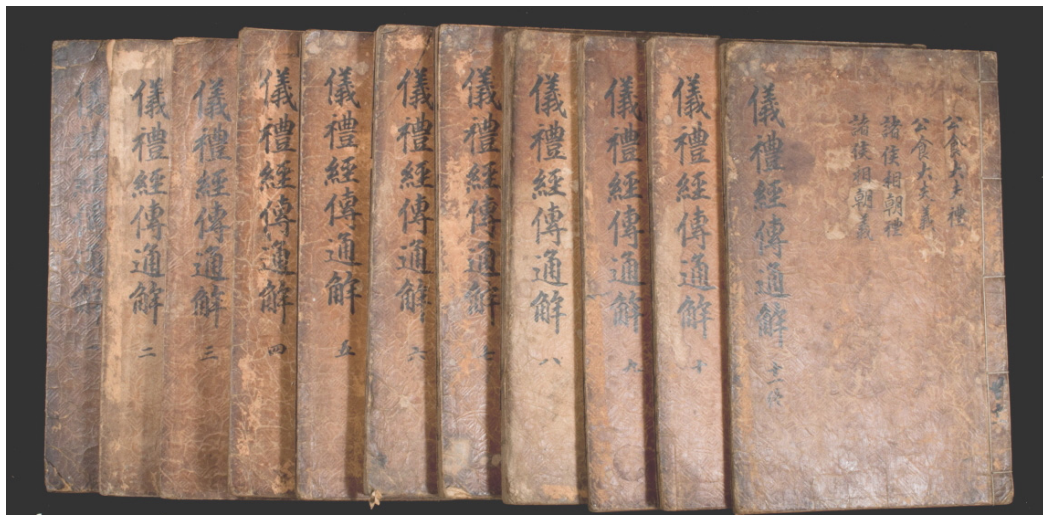 儀禮經傳通解 一
儀禮經傳通解 二
儀禮經傳通解 三
儀禮經傳通解 四
儀禮經傳通解 五
儀禮經傳通解 六
儀禮經傳通解 七
儀禮經傳通解 八
儀禮經傳通解 九
儀禮經傳通解 十
公食大夫禮
公食大夫義
諸侯相朝禮
諸侯相朝義
儀禮經傳通解 十一終